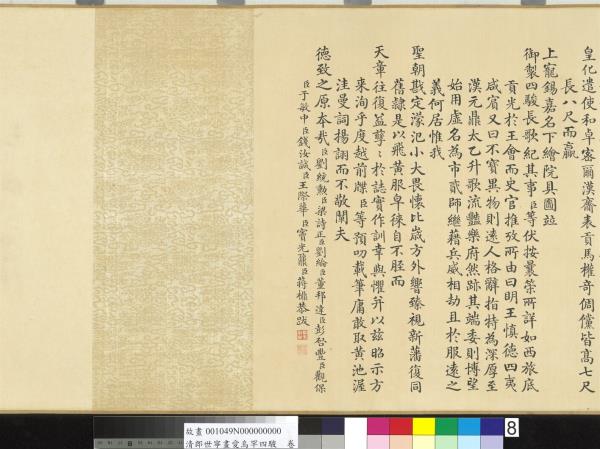 皇化遣使和卓審爾漢齎表貢馬權奇倜儻皆高七尺
長八尺而羸
上寵錫嘉名下繪院具圖竝
御製四駿長歌紀其事臣等伏按曩策所詳如西旅底
貢光於王會而史官推攷所由曰明王慎德四夷
咸賓又曰不寶異物則遠人格辭指特為深厚至
漢元鼎太乙升歌流豔樂府然跡其端委則博望
始用虛名為市貳師繼藉兵威相劫且於服遠之
義何居惟我
聖朝戡定濛汜小大畏懷比歲方外嚮臻視新藩復同
舊隸是以飛黃服皁徠自不脛而
天章往復益孳〻於誌實作訓聿與懼并以茲昭示方
來洵乎度越前牒臣等預叨載筆庸敢取黃池渥
洼曼詞揚詡而不敬闡夫
德致之原本哉臣劉統勳臣梁詩正臣劉綸臣董邦達臣彭啓豐臣觀保
臣于敏中臣錢汝誠臣王際華臣竇光鼐臣蔣檙恭跋
故畫 001049N000000000
清郎世寧畫愛烏罕四駿 卷
8